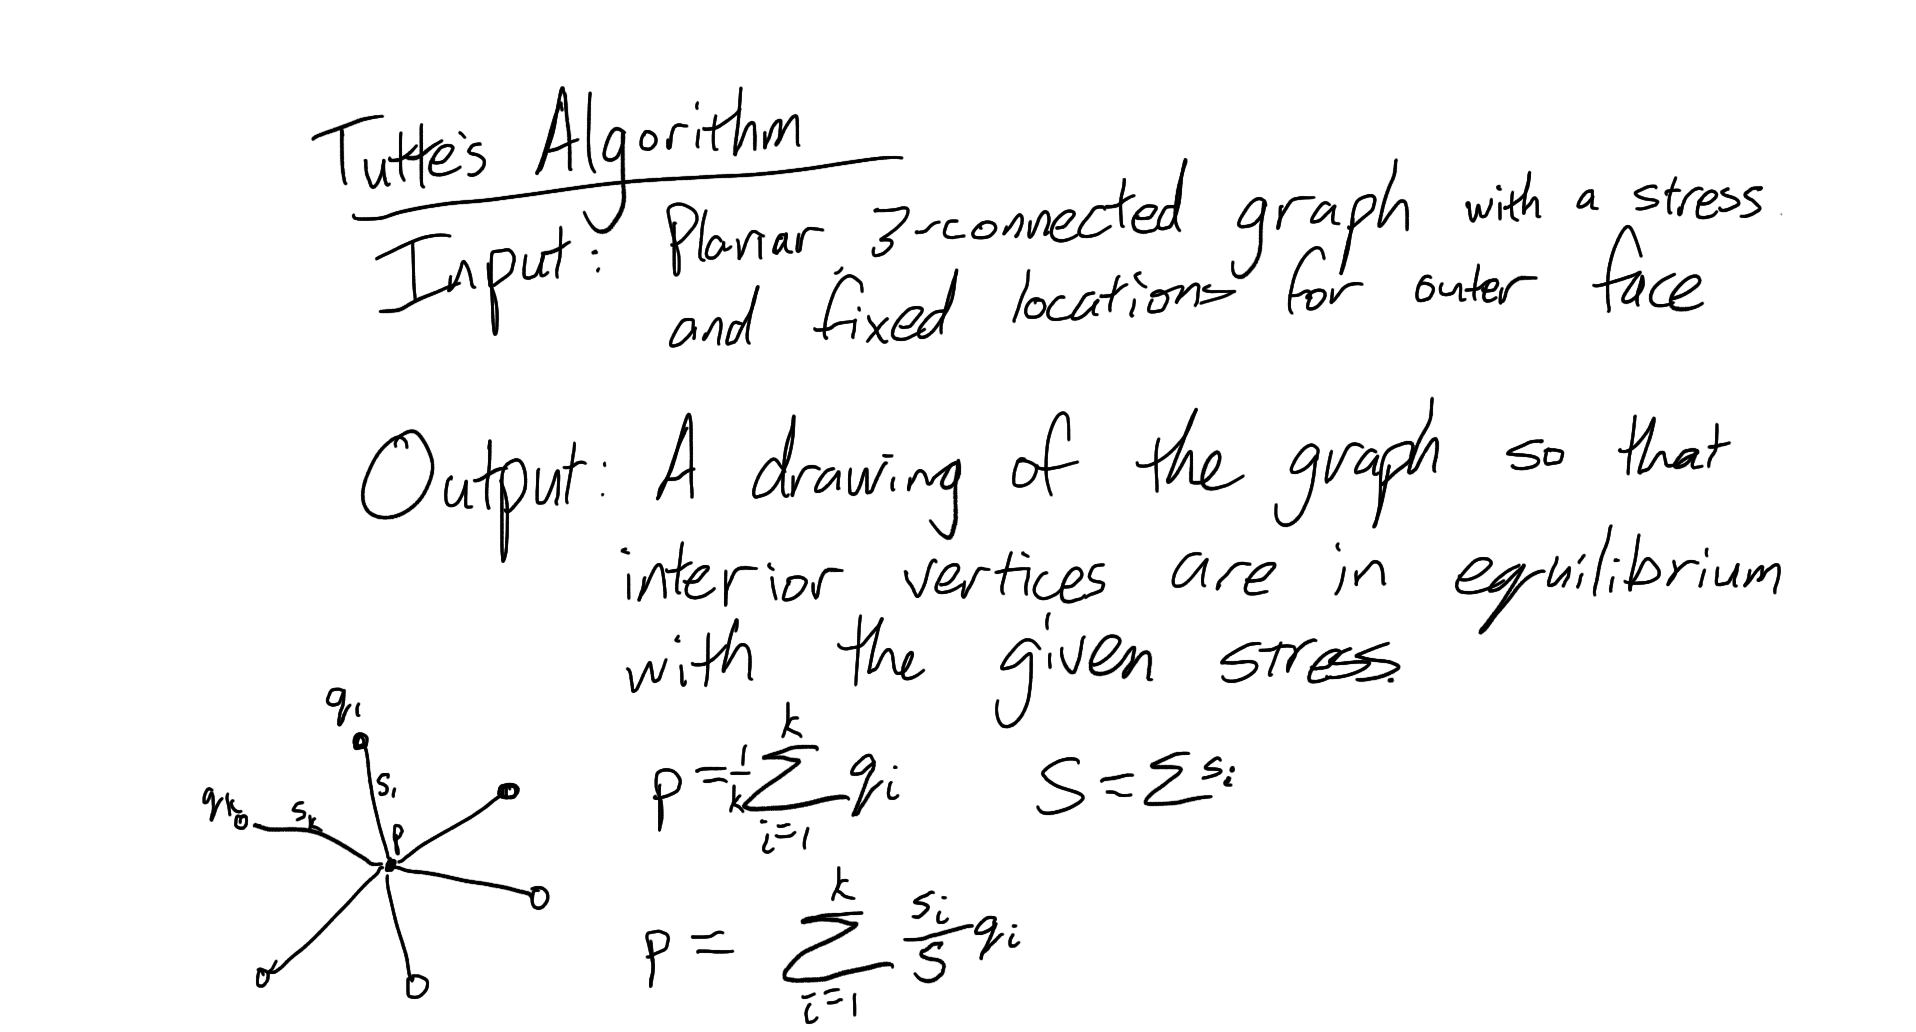 Tutte's Algorithm
Input: Planar 3-connected graph with a stress
and fixed locations for outer face
Output: A drawing of the graph so that
interior vertices are in equilibrium
with the given stress.
q₁
s₁
qₖ
sₖ
p
p = 1/k ∑_{i=1}^{k} qᵢ
S = ∑ sᵢ
p = ∑_{i=1}^{k} sᵢ/S qᵢ